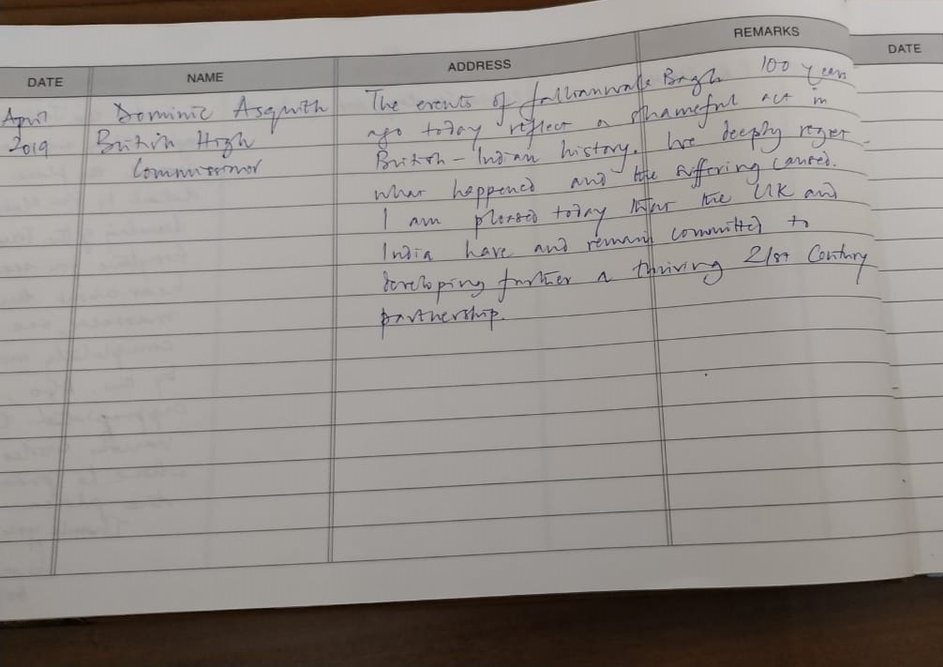 DATE NAME ADDRESS REMARKS DATE
April Dominic Asquith The events of Jallianwala Bagh 100 years
2019 British High ago today reflect a shameful act in
Commissioner British-Indian history. We deeply regret
what happened and the suffering caused.
I am pleased today that the UK and
India have and remain committed to
developing further a thriving 21st Century
partnership.